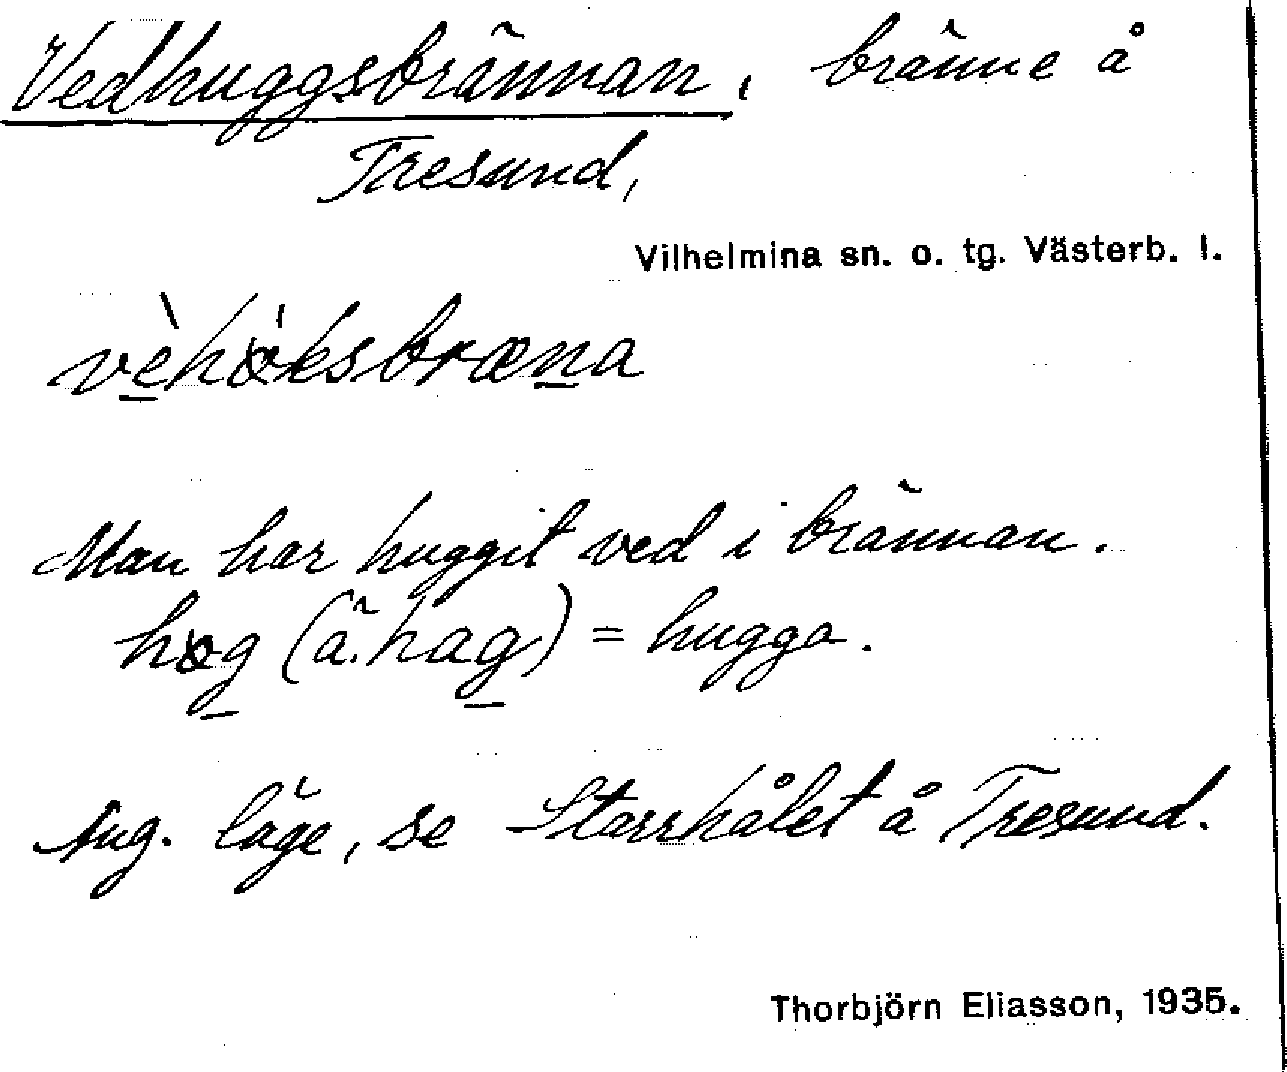 Vedhuggsbrännan, bränne å
Tresund,
Vilhelmina sn. o. tg. Västerb. l.
Man har huggit ved i brännan.
(ä. hag) = hugga.
Ang. läge, se Starrhålet å Tresund.
Thorbjörn Eliasson, 1935.